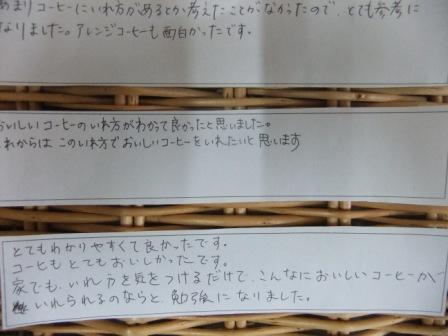 あまりコーヒーにいれ方があるとか考えたことがなかったので、とても参考に
なりました。アレンジコーヒーも面白かったです。
おいしいコーヒーのいれ方がわかって良かったと思いました。
これからは このいれ方でおいしいコーヒーをいれたいと思います
とてもわかりやすくて良かったです。
コーヒーもとてもおいしかったです。
家でも、いれ方を気をつけるだけで、こんなにおいしいコーヒーが
いれられるのならと、勉強になりました。